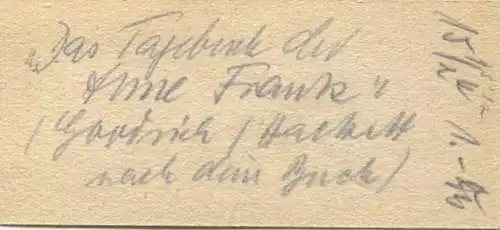 „Das Tagebuch der
Anne Frank"
(Goodrich / Hackett
nach dem Buch)